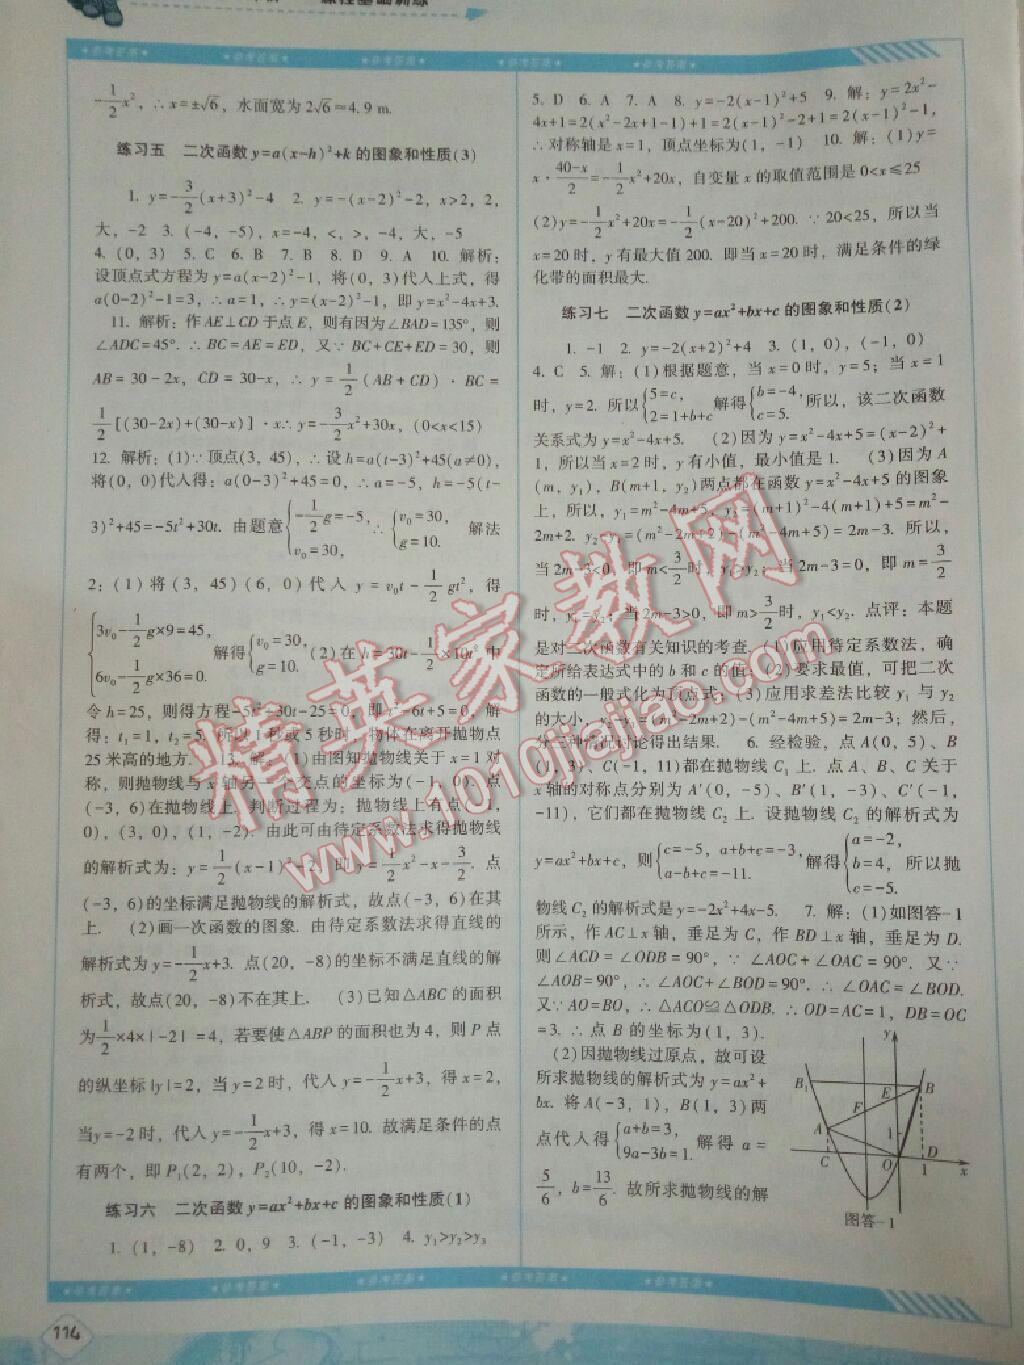 -1/2x²，∴x=±√6，水面宽为2√6≈4.9 m.
练习五　二次函数y=a(x-h)²+k的图象和性质(3)
1. y=-3/2(x+3)²-4　2. y=-(x-2)²-2，x>2，2，
大，-2　3. (-4，-5)，x=-4，<，>，-4，大，-5
4. (0，3)　5. C　6. B　7. B　8. D　9. A　10. 解析：
设顶点式方程为y=a(x-2)²-1，将(0，3)代入上式，得
a(0-2)²-1=3，∴a=1，∴y=(x-2)²-1，即y=x²-4x+3.
11. 解析：作AE⊥CD于点E，则有因为∠BAD=135°，则
∠ADC=45°. ∴BC=AE=ED，又∵BC+CE+ED=30，则
AB=30-2x，CD=30-x，∴y=1/2(AB+CD)·BC=
1/2[(30-2x)+(30-x)]·x∴y=-3/2x²+30x，(0<x<15)
12. 解析：(1)∵顶点(3，45)，∴设h=a(t-3)²+45(a≠0)，
将(0，0)代入得：a(0-3)²+45=0，∴a=-5，h=-5(t-
3)²+45=-5t²+30t. 由题意{-1/2g=-5，v₀=30，∴{v₀=30，g=10.　解法
2：(1)将(3，45)(6，0)代入y=v₀t-1/2gt²，得
{3v₀-1/2g×9=45，6v₀-1/2g×36=0. 解得{v₀=30，g=10. (2)在h=30t-1/2×10t²中
令h=25，则得方程-5t²+30t-25=0，即t²-6t+5=0，解
得：t₁=1，t₂=5. 所以1秒或5秒时，物体在离开抛物点
25米高的地方.　13. 解：(1)由图知抛物线关于x=1对
称，则抛物线与x轴另一个交点的坐标为(-1，0). 点
(-3，6)在抛物线上，判断过程为：抛物线上有点(-1，
0)，(3，0)，(1，-2). 由此可由待定系数法求得抛物线
的解析式为：y=1/2(x-1)²-2，即y=1/2x²-x-3/2. 点
(-3，6)的坐标满足抛物线的解析式，故点(-3，6)在其
上.　(2)画一次函数的图象. 由待定系数法求得直线的
解析式为y=-1/2x+3. 点(20，-8)的坐标不满足直线的解
析式，故点(20，-8)不在其上.　(3)已知△ABC的面积
为1/2×4×|-2|=4，若要使△ABP的面积也为4，则P点
的纵坐标|y|=2，当y=2时，代入y=-1/2x+3，得x=2，
当y=-2时，代入y=-1/2x+3，得x=10. 故满足条件的点
有两个，即P₁(2，2)，P₂(10，-2).
练习六　二次函数y=ax²+bx+c的图象和性质(1)
1. (1，-8)　2. 0，9　3. (-1，-3)　4. y₁>y₂>y₃
5. D　6. A　7. A　8. y=-2(x-1)²+5　9. 解：y=2x²-
4x+1=2(x²-2x+1-1)+1=2(x-1)²-2+1=2(x-1)²-1，
∴对称轴是x=1，顶点坐标为(1，-1)　10. 解：(1)y=
x·(40-x)/2=-1/2x²+20x，自变量x的取值范围是0<x≤25
(2)y=-1/2x²+20x=-1/2(x-20)²+200. ∵20<25，所以当
x=20时，y有最大值200. 即当x=20时，满足条件的绿
化带的面积最大.
练习七　二次函数y=ax²+bx+c的图象和性质(2)
1. -1　2. y=-2(x+2)²+4　3. (1，0)，(-1，0)
4. C　5. 解：(1)根据题意，当x=0时，y=5；当x=1
时，y=2. 所以{5=c，2=1+b+c 解得{b=-4，c=5. 所以，该二次函数
关系式为y=x²-4x+5.　(2)因为y=x²-4x+5=(x-2)²+
1，所以当x=2时，y有小值，最小值是1.　(3)因为A
(m，y₁)，B(m+1，y₂)两点都在函数y=x²-4x+5的图象
上，所以，y₁=m²-4m+5，y₂=(m+1)²-4(m+1)+5=m²-
2m+2. y₂-y₁=(m²-2m+2)-(m²-4m+5)=2m-3. 所以，
当2m-3<0，即m<3/2时，y₁>y₂；当2m-3=0，即m=3/2
时，y₁=y₂；当2m-3>0，即m>3/2时，y₁<y₂. 点评：本题
是对二次函数有关知识的考查. (1)应用待定系数法，确
定所给表达式中的b和c的值；(2)要求最值，可把二次
函数的一般式化为顶点式；(3)应用求差法比较y₁与y₂
的大小，y₂-y₁=(m²-2m+2)-(m²-4m+5)=2m-3；然后，
分三种情况讨论得出结果.　6. 经检验，点A(0，5)、B
(1，3)、C(-1，11)都在抛物线C₁上. 点A、B、C关于
x轴的对称点分别为A′(0，-5)、B′(1，-3)、C′(-1，
-11)，它们都在抛物线C₂上. 设抛物线C₂的解析式为
y=ax²+bx+c，则{c=-5，a+b+c=-3，a-b+c=-11. 解得{a=-2，b=4，c=-5. 所以抛
物线C₂的解析式是y=-2x²+4x-5.　7. 解：(1)如图答-1
所示，作AC⊥x轴，垂足为C，作BD⊥x轴，垂足为D.
则∠ACD=∠ODB=90°，∵∠AOC+∠OAC=90°. 又∵
∠AOB=90°，∴∠AOC+∠BOD=90°. ∴∠OAC=∠BOD.
又∵AO=BO，∴△ACO≌△ODB. ∴OD=AC=1，DB=OC
=3. ∴点B的坐标为(1，3).
(2)因抛物线过原点，故可设
所求抛物线的解析式为y=ax²+
bx. 将A(-3，1)，B(1，3)两
点代入得{a+b=3，9a-3b=1. 解得a=
5/6，b=13/6. 故所求抛物线的解
y
B₁
E
B
F
A
1
C
O
1
D
x
图答-1
114
精英家教网
www.1010jiajiao.com